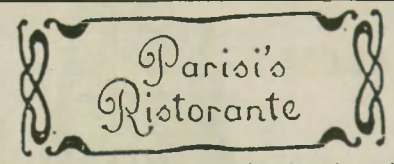 Parisi's
Ristorante